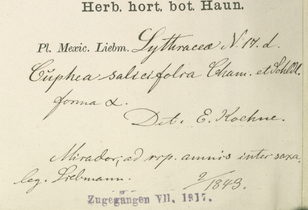 Herb. hort. bot. Haun.
Pl. Mexic. Liebm. Lythracea N. 17. d.
Cuphea salicifolia Cham. et Schldl.
forma α.
Det. E. Koehne.
Mirador, ad rip. amnis inter saxa
leg. Liebmann. 9/1843.
Zugegangen VII. 1917.